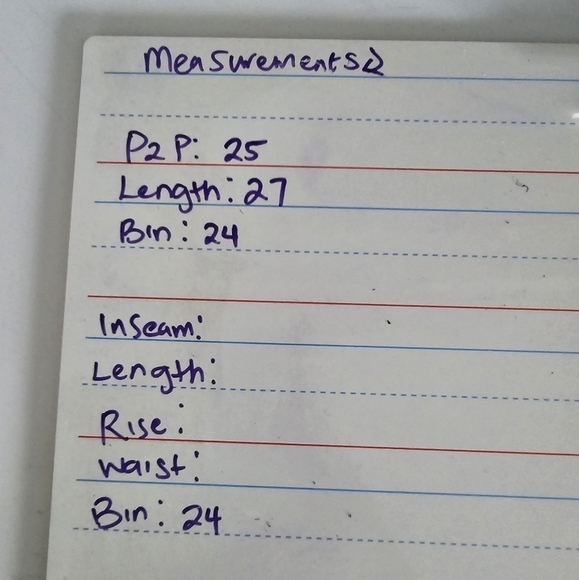 Measurements
P2P: 25
Length: 27
Bin: 24
Inseam:
Length:
Rise:
Waist:
Bin: 24